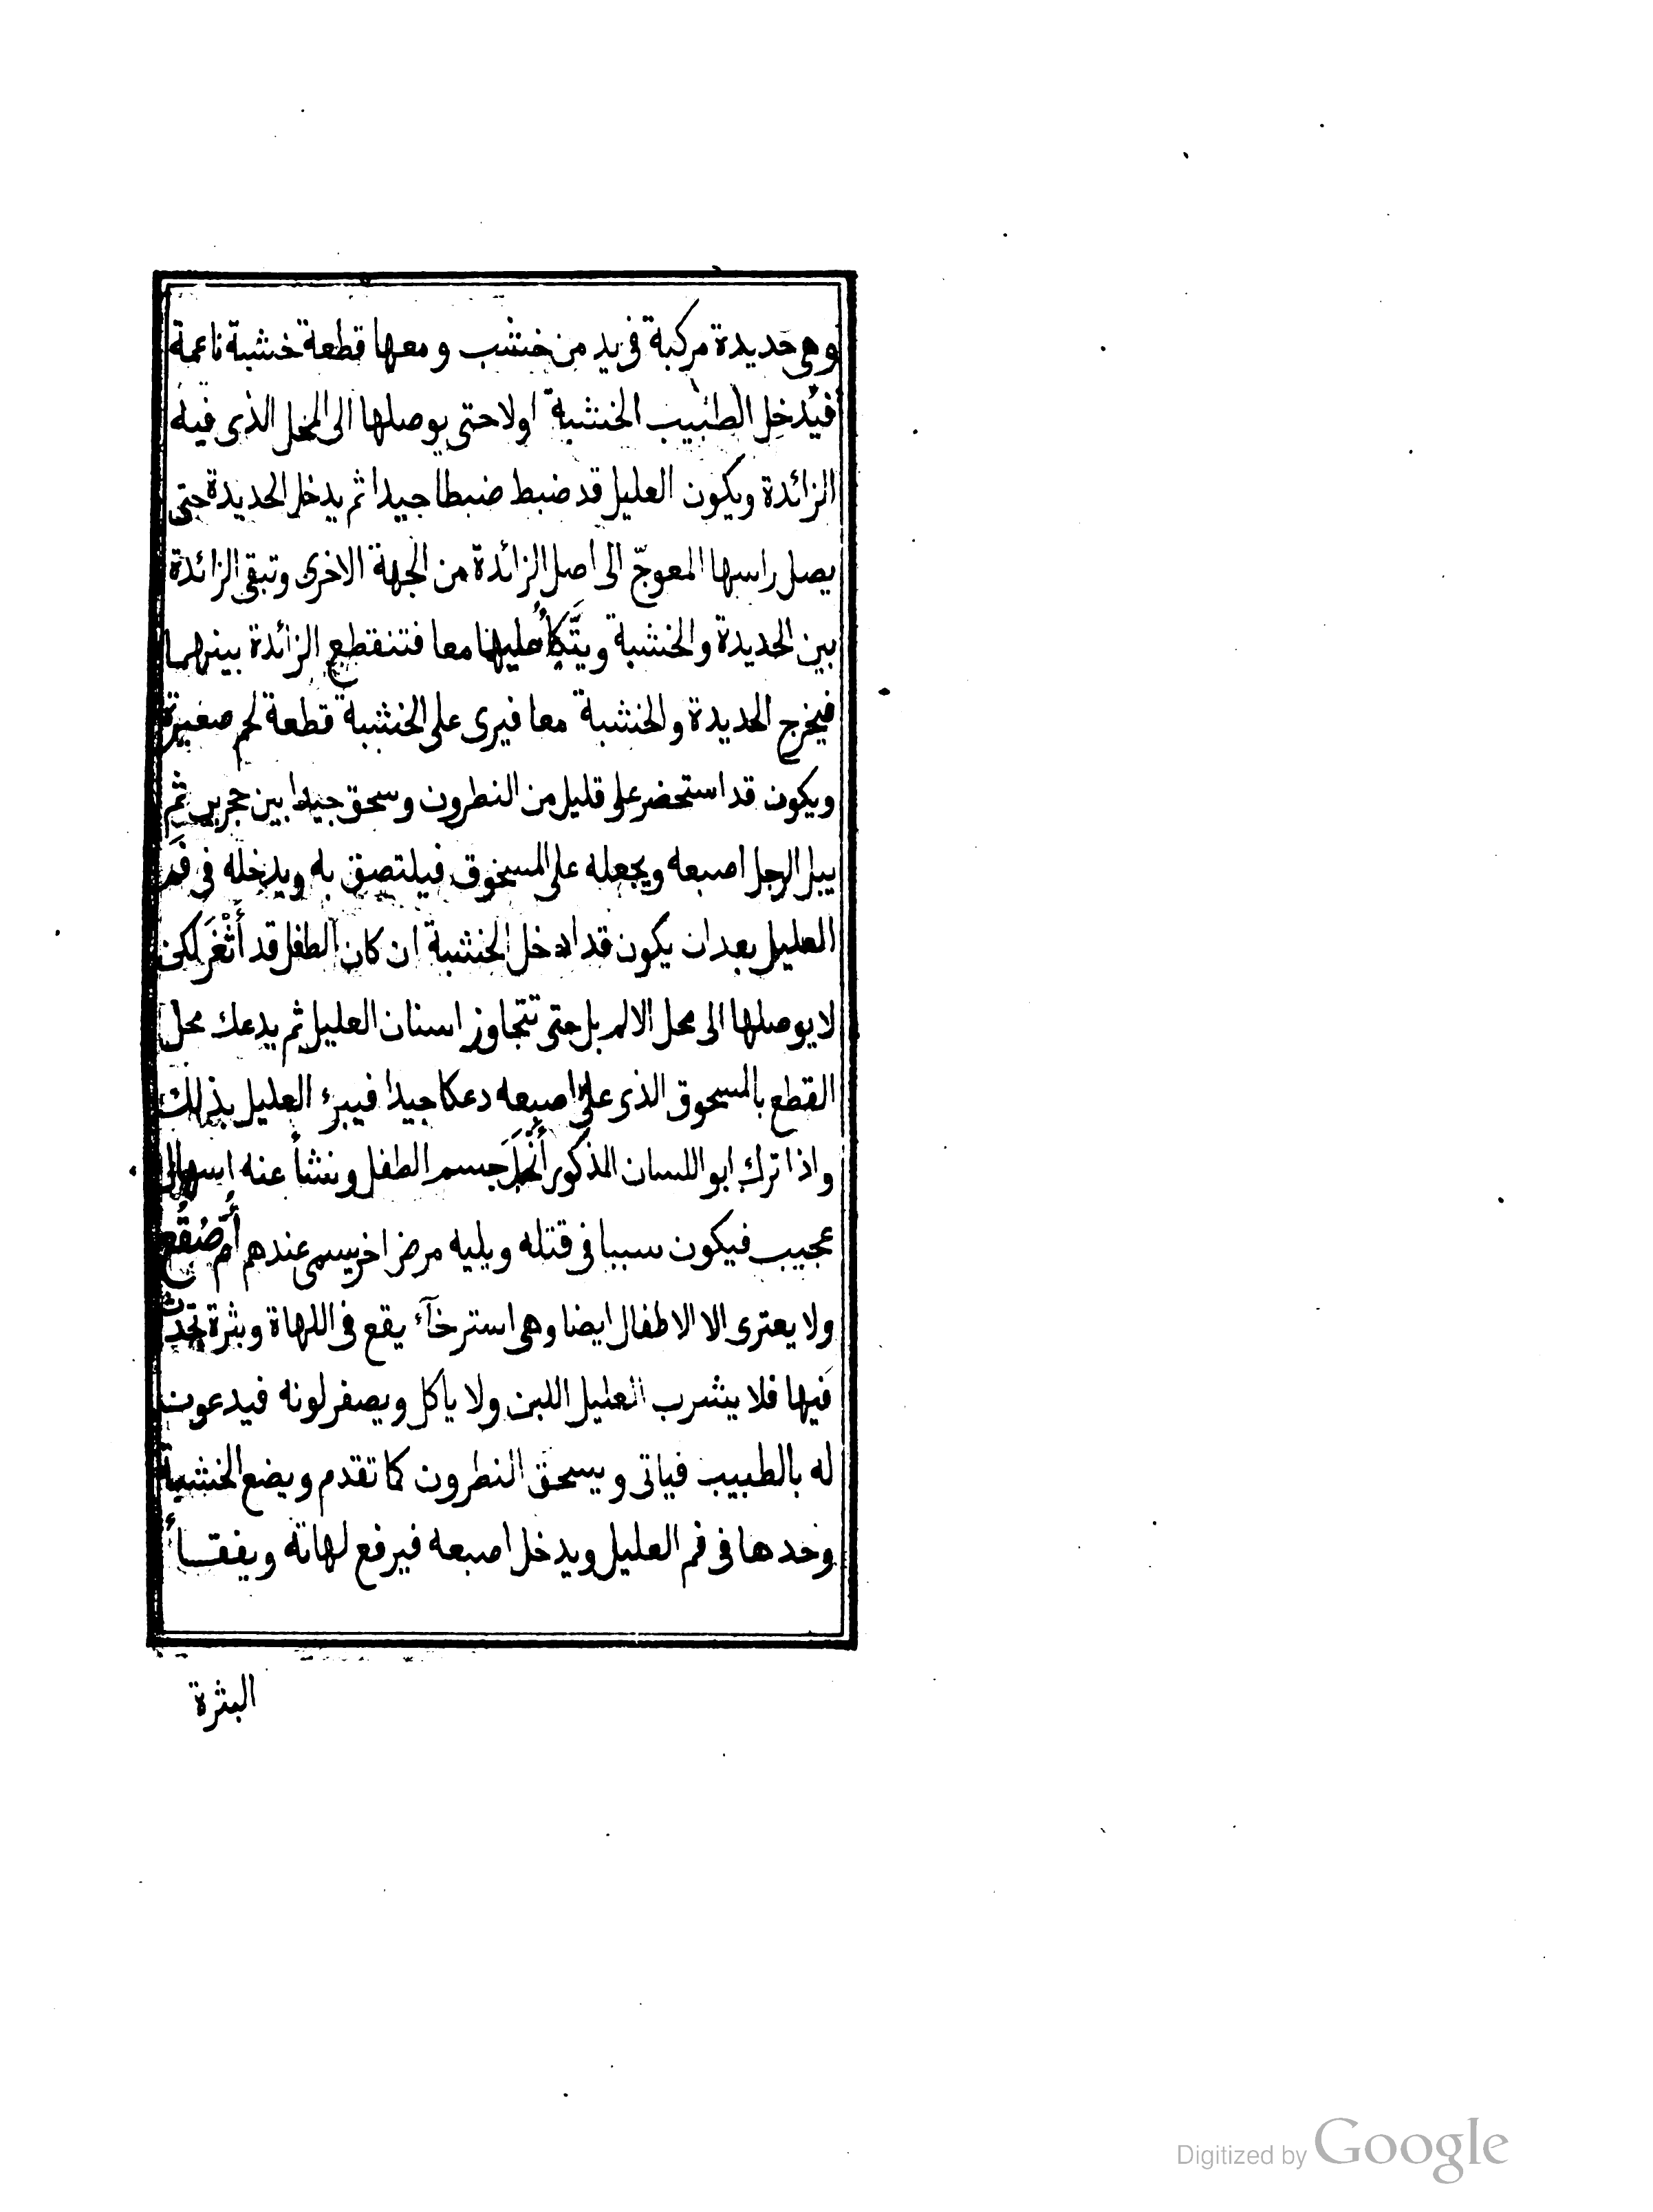 وهى حديدة مركبة فى يد من خشب ومعها قطعة خشبة ناعمة
فيُدخل الطبيب الخشبة اولا حتى يوصلها الى المحل الذى فيه
الزائدة ويكون العليل قد ضبط ضبطا جيدا ثم يدخل الحديدة حتى
يصل راسها المعوجّ الى اصل الزائدة من الجهة الاخرى وتبقى الزائدة
بين الحديدة والخشبة ويتَّكَأُ عليهما معا فتنقطع الزائدة بينهما
فيخرج الحديدة والخشبة معا فيرى على الخشبة قطعة لحم صغيرة
ويكون قد استحضر على قليل من النطرون وسحق جيدا بين حجرين ثم
يبل الرجل اصبعه ويجعله على المسحوق فيلتصق به ويدخله فى فَم
العليل بعد ان يكون قد ادخل الخشبة ان كان الطفل قد أَثْغَرَ لكن
لا يوصلها الى محل الالم بل حتى تتجاوز اسنان العليل ثم يدعك محل
القطع بالمسحوق الذى على اصبعه دعكا جيدا فيبرء العليل بذلك
واذا ترك ابو اللسان المذكور أَنْحَلَ جسم الطفل ونشأ عنه إسهال
عجيب فيكون سببا فى قتله ويليه مرض اخر يسمى عندهم أُمّ صُقُع
ولا يعترى الا الاطفال ايضا وهى استرخآء يقع فى اللهاة وبثرة تحدث
فيها فلا يشرب العليل اللبن ولا ياكل ويصفر لونه فيدعون
له بالطبيب فياتى ويسحق النطرون كما تقدم ويضع الخشبة
وحدها فى فم العليل ويدخل اصبعه فيرفع لهاته ويفقأ
البثرة
Digitized by Google